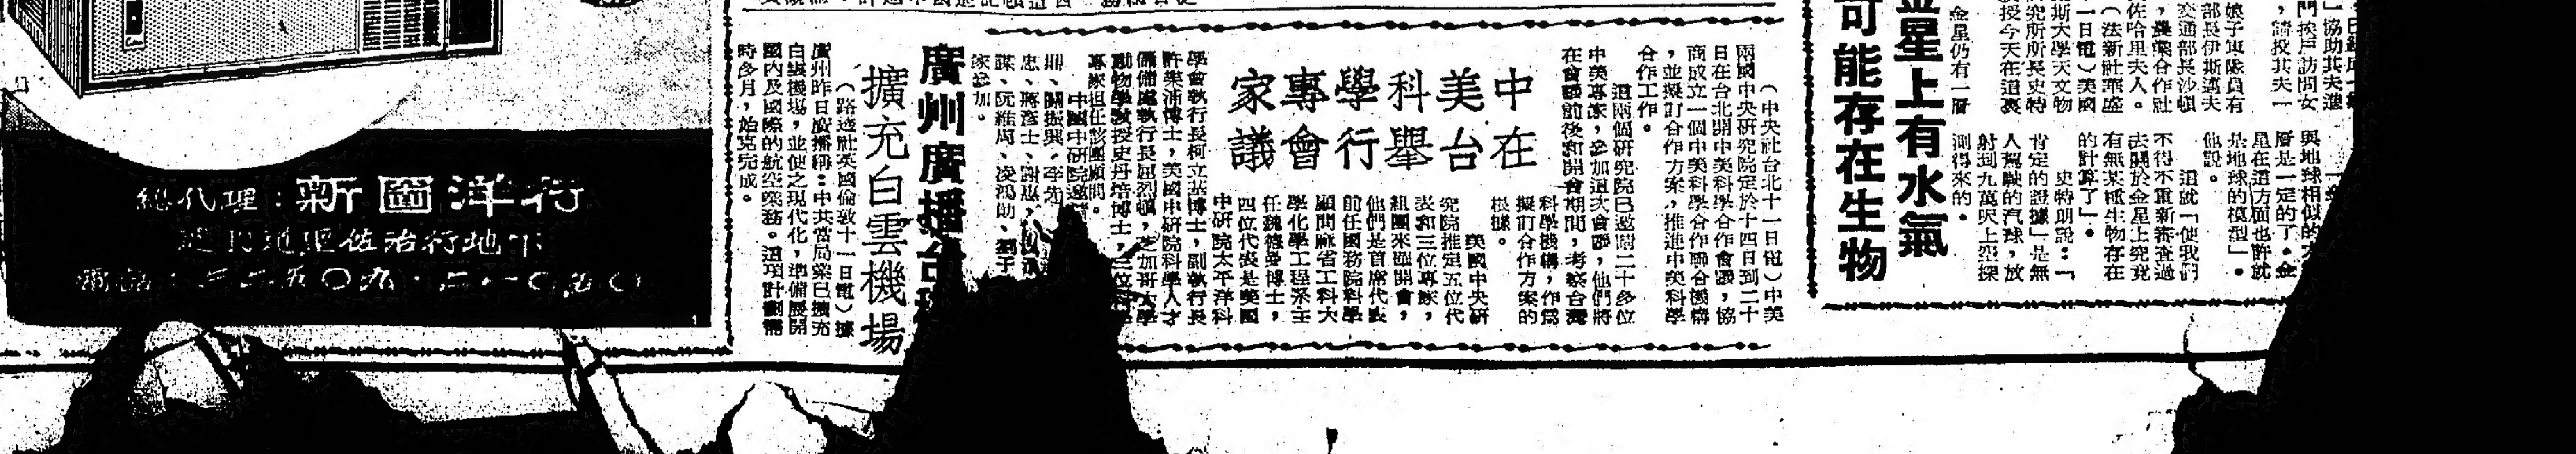 協助其夫進
門挨戶訪問女
，請投其夫一
娘子軍隊員有
部長伊斯邁夫
交通部長沙頓
，農業合作社
佐哈里夫人。
金星上有水氣
可能存在生物
（法新社華盛
一日電）美國
斯大學天文物
究所所長史特
授今天在這裏
金星仍有一層
與地球相似的大
層是一定的了。金
星在這方面也許就
是地球的模型」。
他說。
這就「使我們
不得不重新審查過
去關於金星上究竟
有無某種生物存在
的計算了」。
史特朗說：「
肯定的證據」是無
人駕駛的汽球，放
射到九萬呎上空探
測得來的。
中美科學專家
在台舉行會議
（中央社台北十一日電）中美
兩國中央研究院定於十四日到二十
日在台北開中美科學合作會議，協
商成立一個中美科學合作聯合機構
，並擬訂合作方案，推進中美科學
合作工作。
這兩個研究院已邀請二十多位
中美專家，參加這次會議，他們將
在會議前後和開會期間，考察台灣
科學機構，作為
擬訂合作方案的
根據。
美國中央研
究院推定五位代
表和三位專家，
組團來台開會，
他們是首席代表
前任國務院科學
顧問麻省工科大
學化學工程系主
任魏德曼博士，
四位代表是美國
中研院太平洋科
學會執行長柯立芝博士，副執行長
許樂浦博士，美國中研院科學人才
儲備處執行長屈烈頓，芝加哥大學
動物學教授史丹培博士，三位科學
專家担任該團顧問。
中國中研院邀請
鼎、關振興、李先
忠、蔣彥士、謝惠
謀、阮維周、凌鴻勛、劉于
家參加。
廣州廣播台
擴充白雲機場
（路透社英國倫敦十一日電）據
廣州昨日廣播稱：中共當局業已擴充
白雲機場，並使之現代化，準備展開
國內及國際的航空業務。這項計劃需
時多月，始克完成。
總代理：新國洋行
遮打道聖佐治行地下